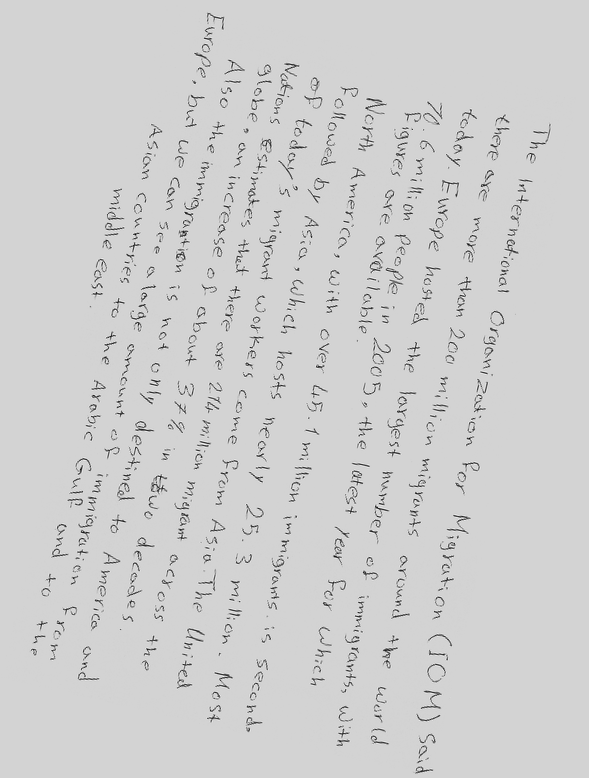 The International Organization for Migration (IOM) said
there are more than 200 million migrants around the world
today. Europe hosted the largest number of immigrants, with
70.6 million people in 2005, the latest year for which
figures are available.
North America, with over 45.1 million immigrants. is second,
followed by Asia, which hosts nearly 25.3 million. Most
of today's migrant workers come from Asia. The United
Nations estimates that there are 214 million migrant across the
globe, an increase of about 37% in two decades.
Also the immigration is not only destined to America and
Europe, but we can see a large amount of immigration from
Asian countries to the Arabic Gulf and to the
middle east.